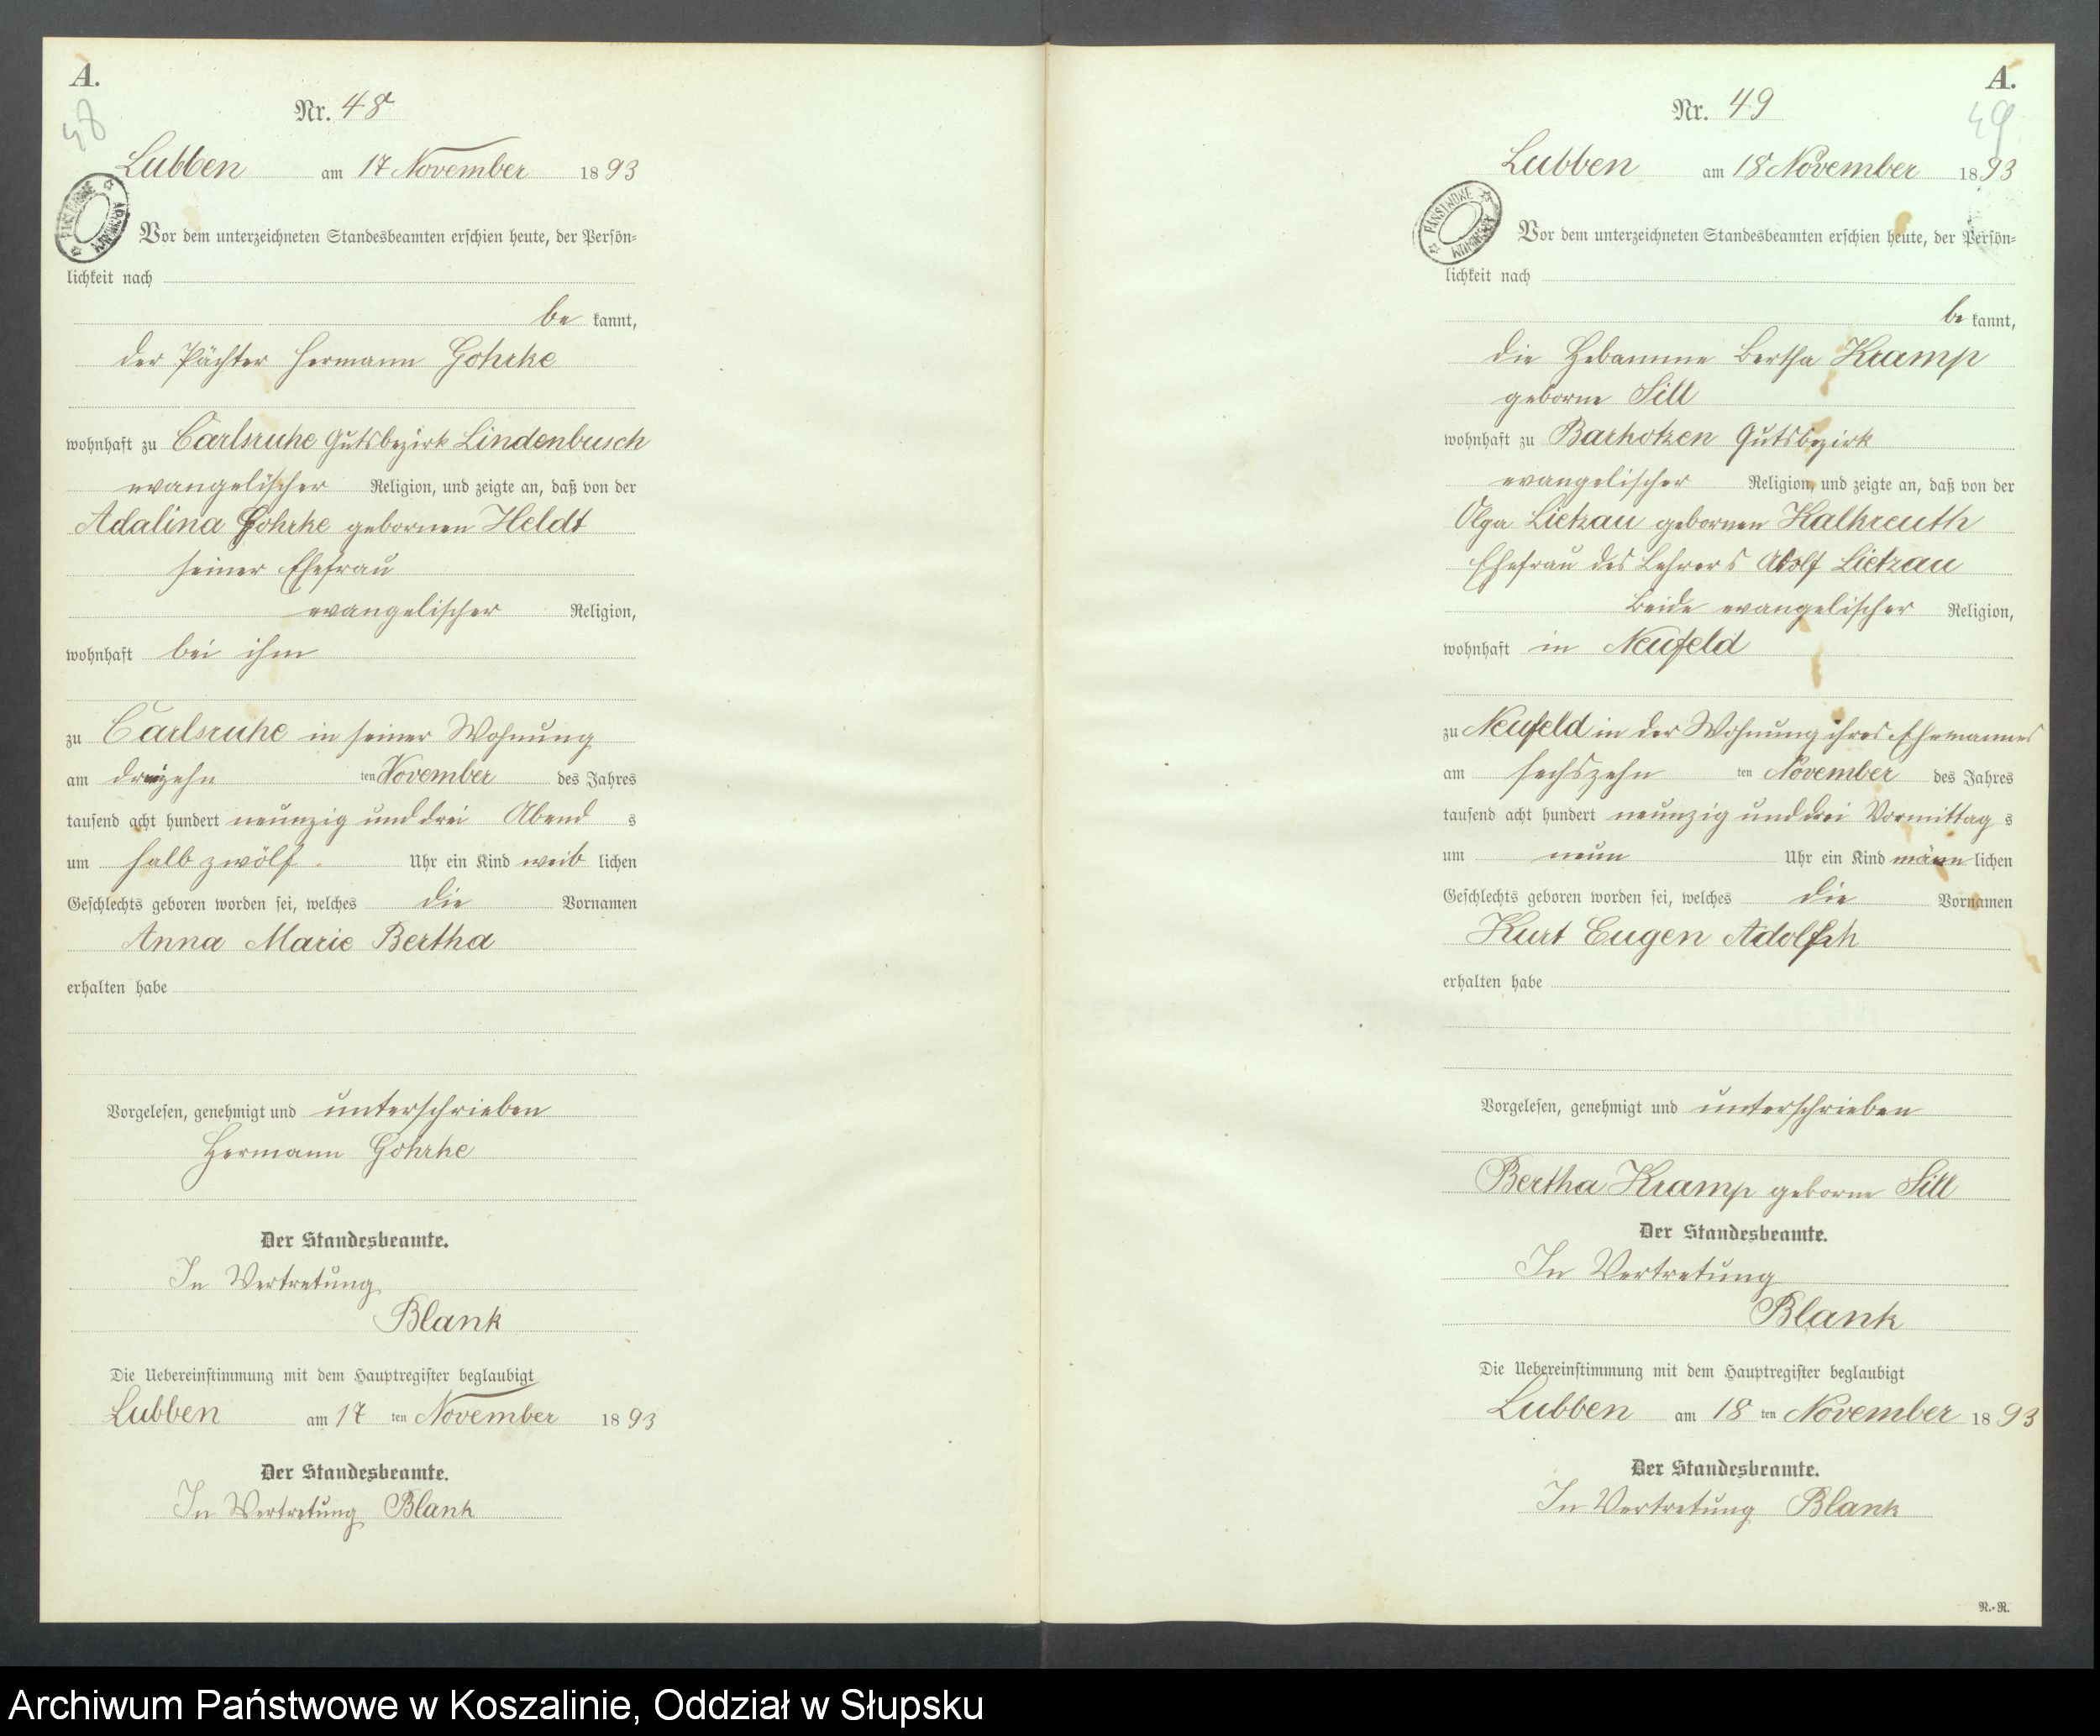 A.
Nr. 48
48
Lubben am 17 November 1893
Vor dem unterzeichneten Standesbeamten erschien heute, der Persön=
lichkeit nach
be kannt,
der Pächter Hermann Gohrke
wohnhaft zu Carlsruhe Gutsbezirk Lindenbusch
evangelischer Religion, und zeigte an, daß von der
Adalina Gohrke gebornen Heldt
seiner Ehefrau
evangelischer Religion,
wohnhaft bei ihm
zu Carlsruhe in seiner Wohnung
am dreizehn ten November des Jahres
tausend acht hundert neunzig und drei Abend s
um halb zwölf Uhr ein Kind weib lichen
Geschlechts geboren worden sei, welches die Vornamen
Anna Marie Bertha
erhalten habe
Vorgelesen, genehmigt und unterschrieben
Hermann Gohrke
Der Standesbeamte.
In Vertretung
Blank
Die Uebereinstimmung mit dem Hauptregister beglaubigt
Lubben am 17 ten November 1893
Der Standesbeamte.
In Vertretung Blank
A.
Nr. 49
49
Lubben am 18 November 1893
PAŃSTWOWE ARCHIWUM
Vor dem unterzeichneten Standesbeamten erschien heute, der Persön=
lichkeit nach
be kannt,
die Hebamme Bertha Kramp
geborne Sill
wohnhaft zu Barkotzen Gutsbezirk
evangelischer Religion, und zeigte an, daß von der
Olga Lietzau gebornen Kalkreuth
Ehefrau des Lehrers Adolf Lietzau
beide evangelischer Religion,
wohnhaft in Neufeld
zu Neufeld in der Wohnung ihres Ehemannes
am sechszehn ten November des Jahres
tausend acht hundert neunzig und drei Vormittag s
um neun Uhr ein Kind männ lichen
Geschlechts geboren worden sei, welches die Vornamen
Kurt Eugen
erhalten habe
Vorgelesen, genehmigt und unterschrieben
Bertha Kramp geborne Sill
Der Standesbeamte.
In Vertretung
Blank
Die Uebereinstimmung mit dem Hauptregister beglaubigt
Lubben am 18 ten November 1893
Der Standesbeamte.
In Vertretung Blank
R.=R.
Archiwum Państwowe w Koszalinie, Oddział w Słupsku